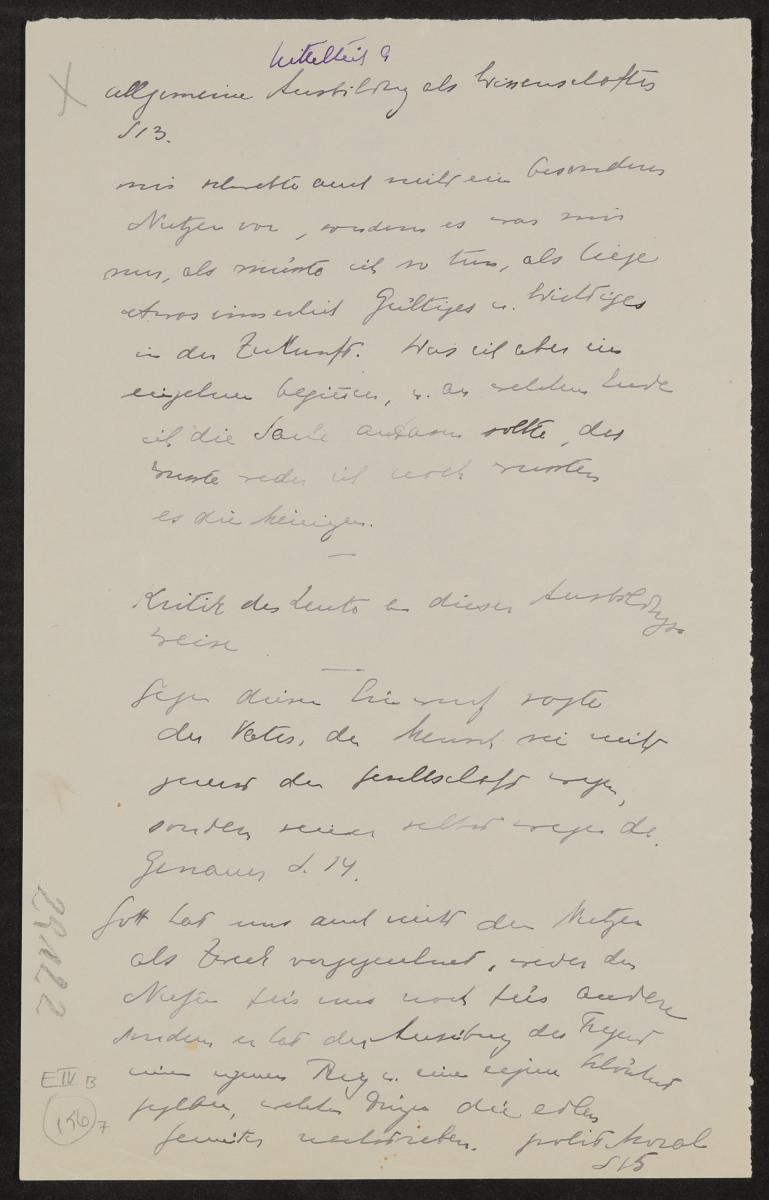 Mittelteil G
allgemeine Ausbildung als Wissenschafter
S 13.
mir schwebte auch nicht ein besonderer
Nutzen vor, sondern es war mir
nur, als müsste ich so tun, als liege
etwas innerlich Gültiges u. Wichtiges
in der Zukunft. Was ich aber im
einzelnen beginnen, u. an welchem Ende
ich die Sache anfassen sollte, das
wusste weder ich noch wussten
es die Meinigen.
Kritik der Leute an dieser Ausbildungs
weise
Gegen diesen Einwurf sagte
der Vater, der Mensch sei nicht
zuerst der Gesellschaft wegen,
sondern seiner selbst wegen da.
Genauer S. 14.
Gott hat uns auch nicht den Nutzen
als Zweck vorgezeichnet, weder den
Nutzen für uns noch für andere
sondern er hat der Ausübung der Tugend
einen eigenen Reiz u. eine eigene Schönheit
gegeben, welchen Dingen die edlen
Gemüter nachstreben. polit Moral
S 15
29N22
E IV B
156 7